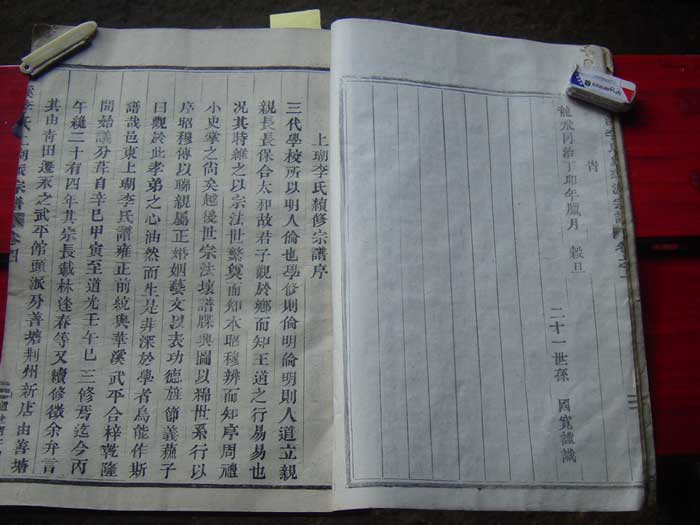 旹
龍飛同治丁卯年臘月 穀旦
二十一世孫 國寬謹識
上瑚李氏續修宗譜序
三代學校所以明人倫也學修則倫明倫明則人道立親
親長長保合太和故君子觀於鄉而知王道之行易易也
況其時維之以宗法世繫奠而知本昭穆辨而知序周禮
小史掌之尚矣越後世宗法壞譜牒興圖以稱世系行以
序昭穆傳以聯親屬正婚姻藝文以表功德旌節義蘓子
曰觀於此孝弟之心油然而生是非深於學者烏能作斯
譜哉邑東上瑚李氏譜雍正前純與華溪武平合梓乾隆
間始議分葺自辛巳甲寅至道光壬午巳三修焉迄今丙
午穐二十有四年其宗長載林逢春等又續修徵余弁言
其由青田遷永之武平館頭派分善塘荆州新店由善塘
李氏上瑚派宗譜